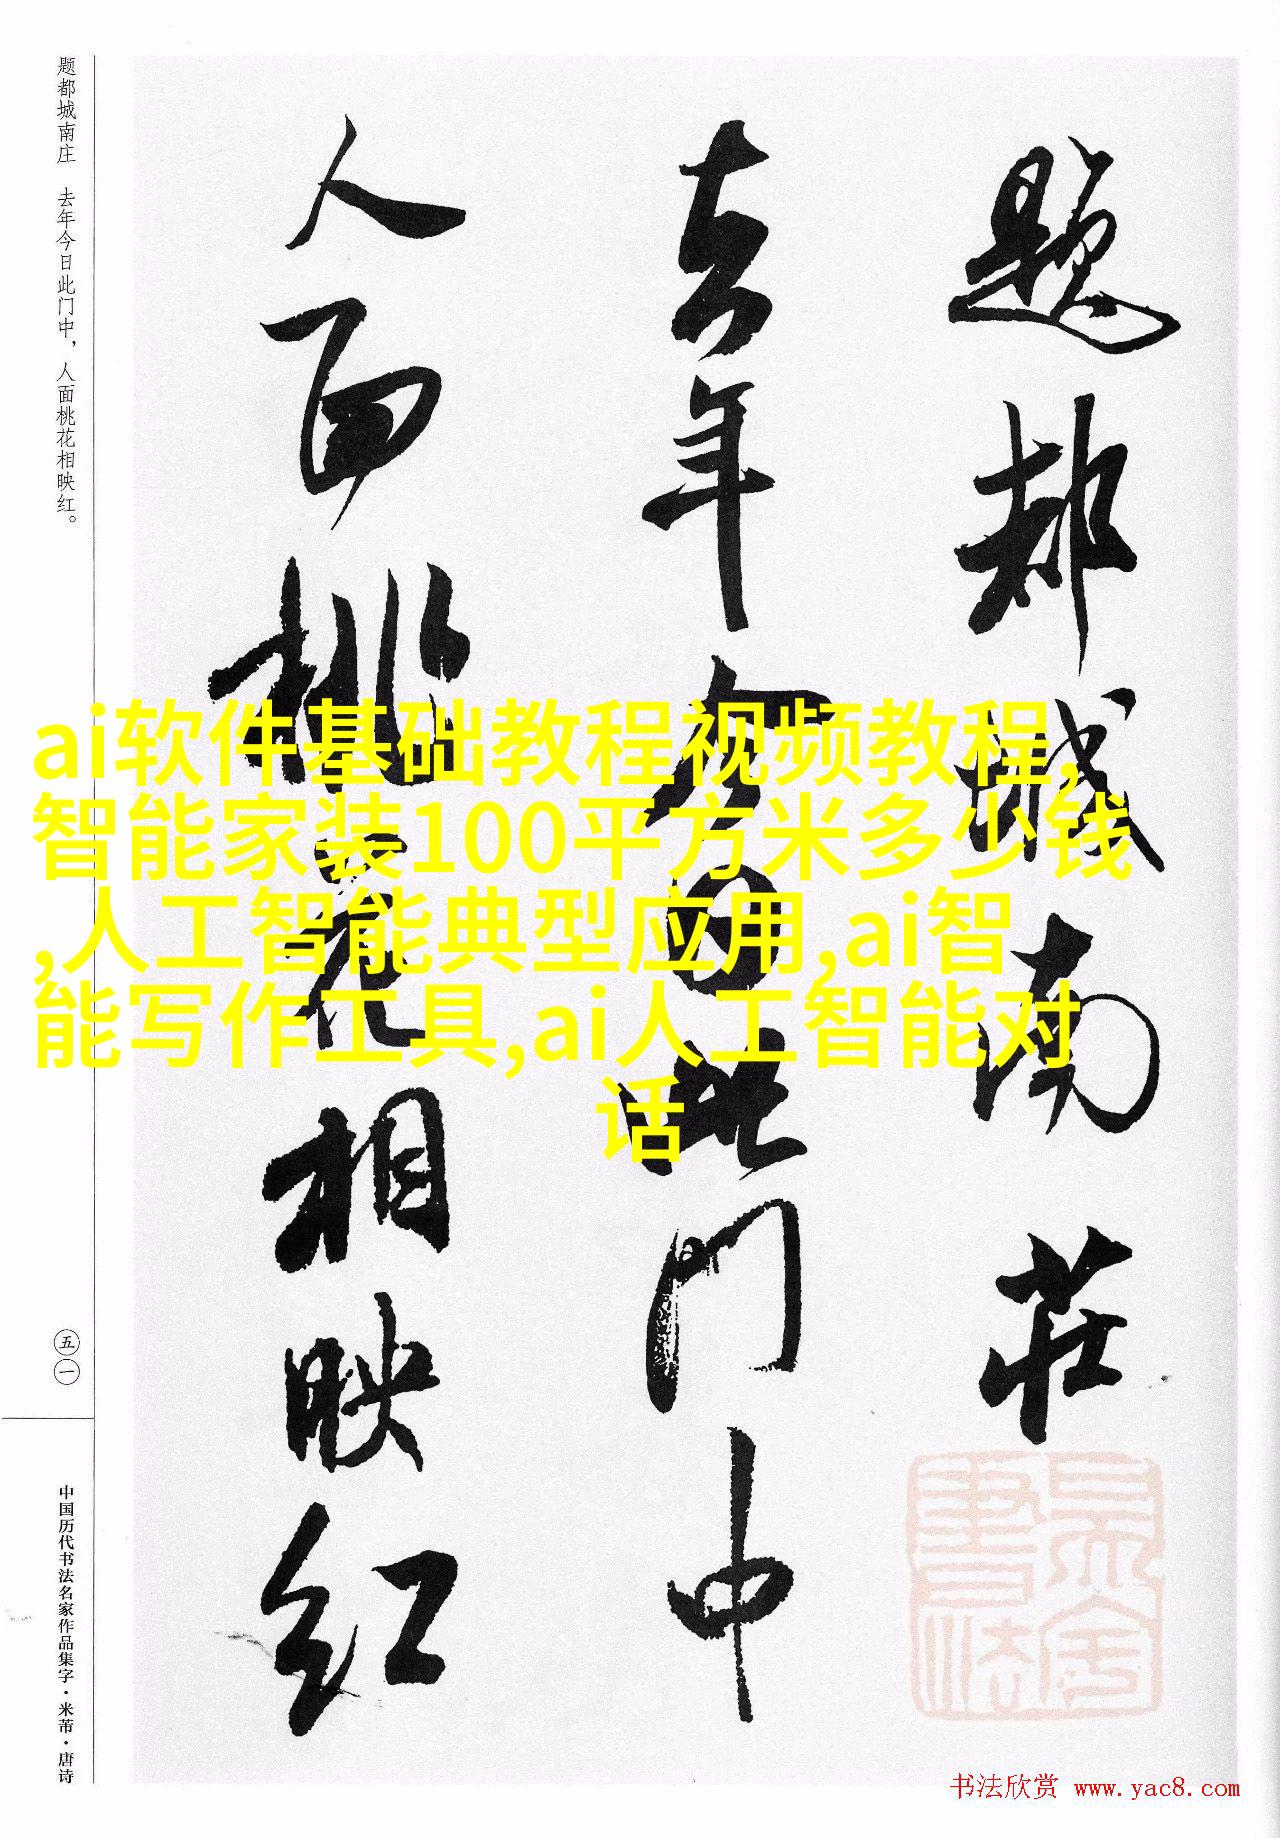 题都城南庄　去年今日此门中，人面桃花相映红。
题都城南莊
去年今日此门中
人面桃花相映红
ai软件基础教程视频教程,
智能家装100平方米多少钱
,人工智能典型应用,ai智
能写作工具,ai人工智能对
话
五一
中国历代书法名家作品集字·米芾·唐诗
书法欣赏 www.yac8.com